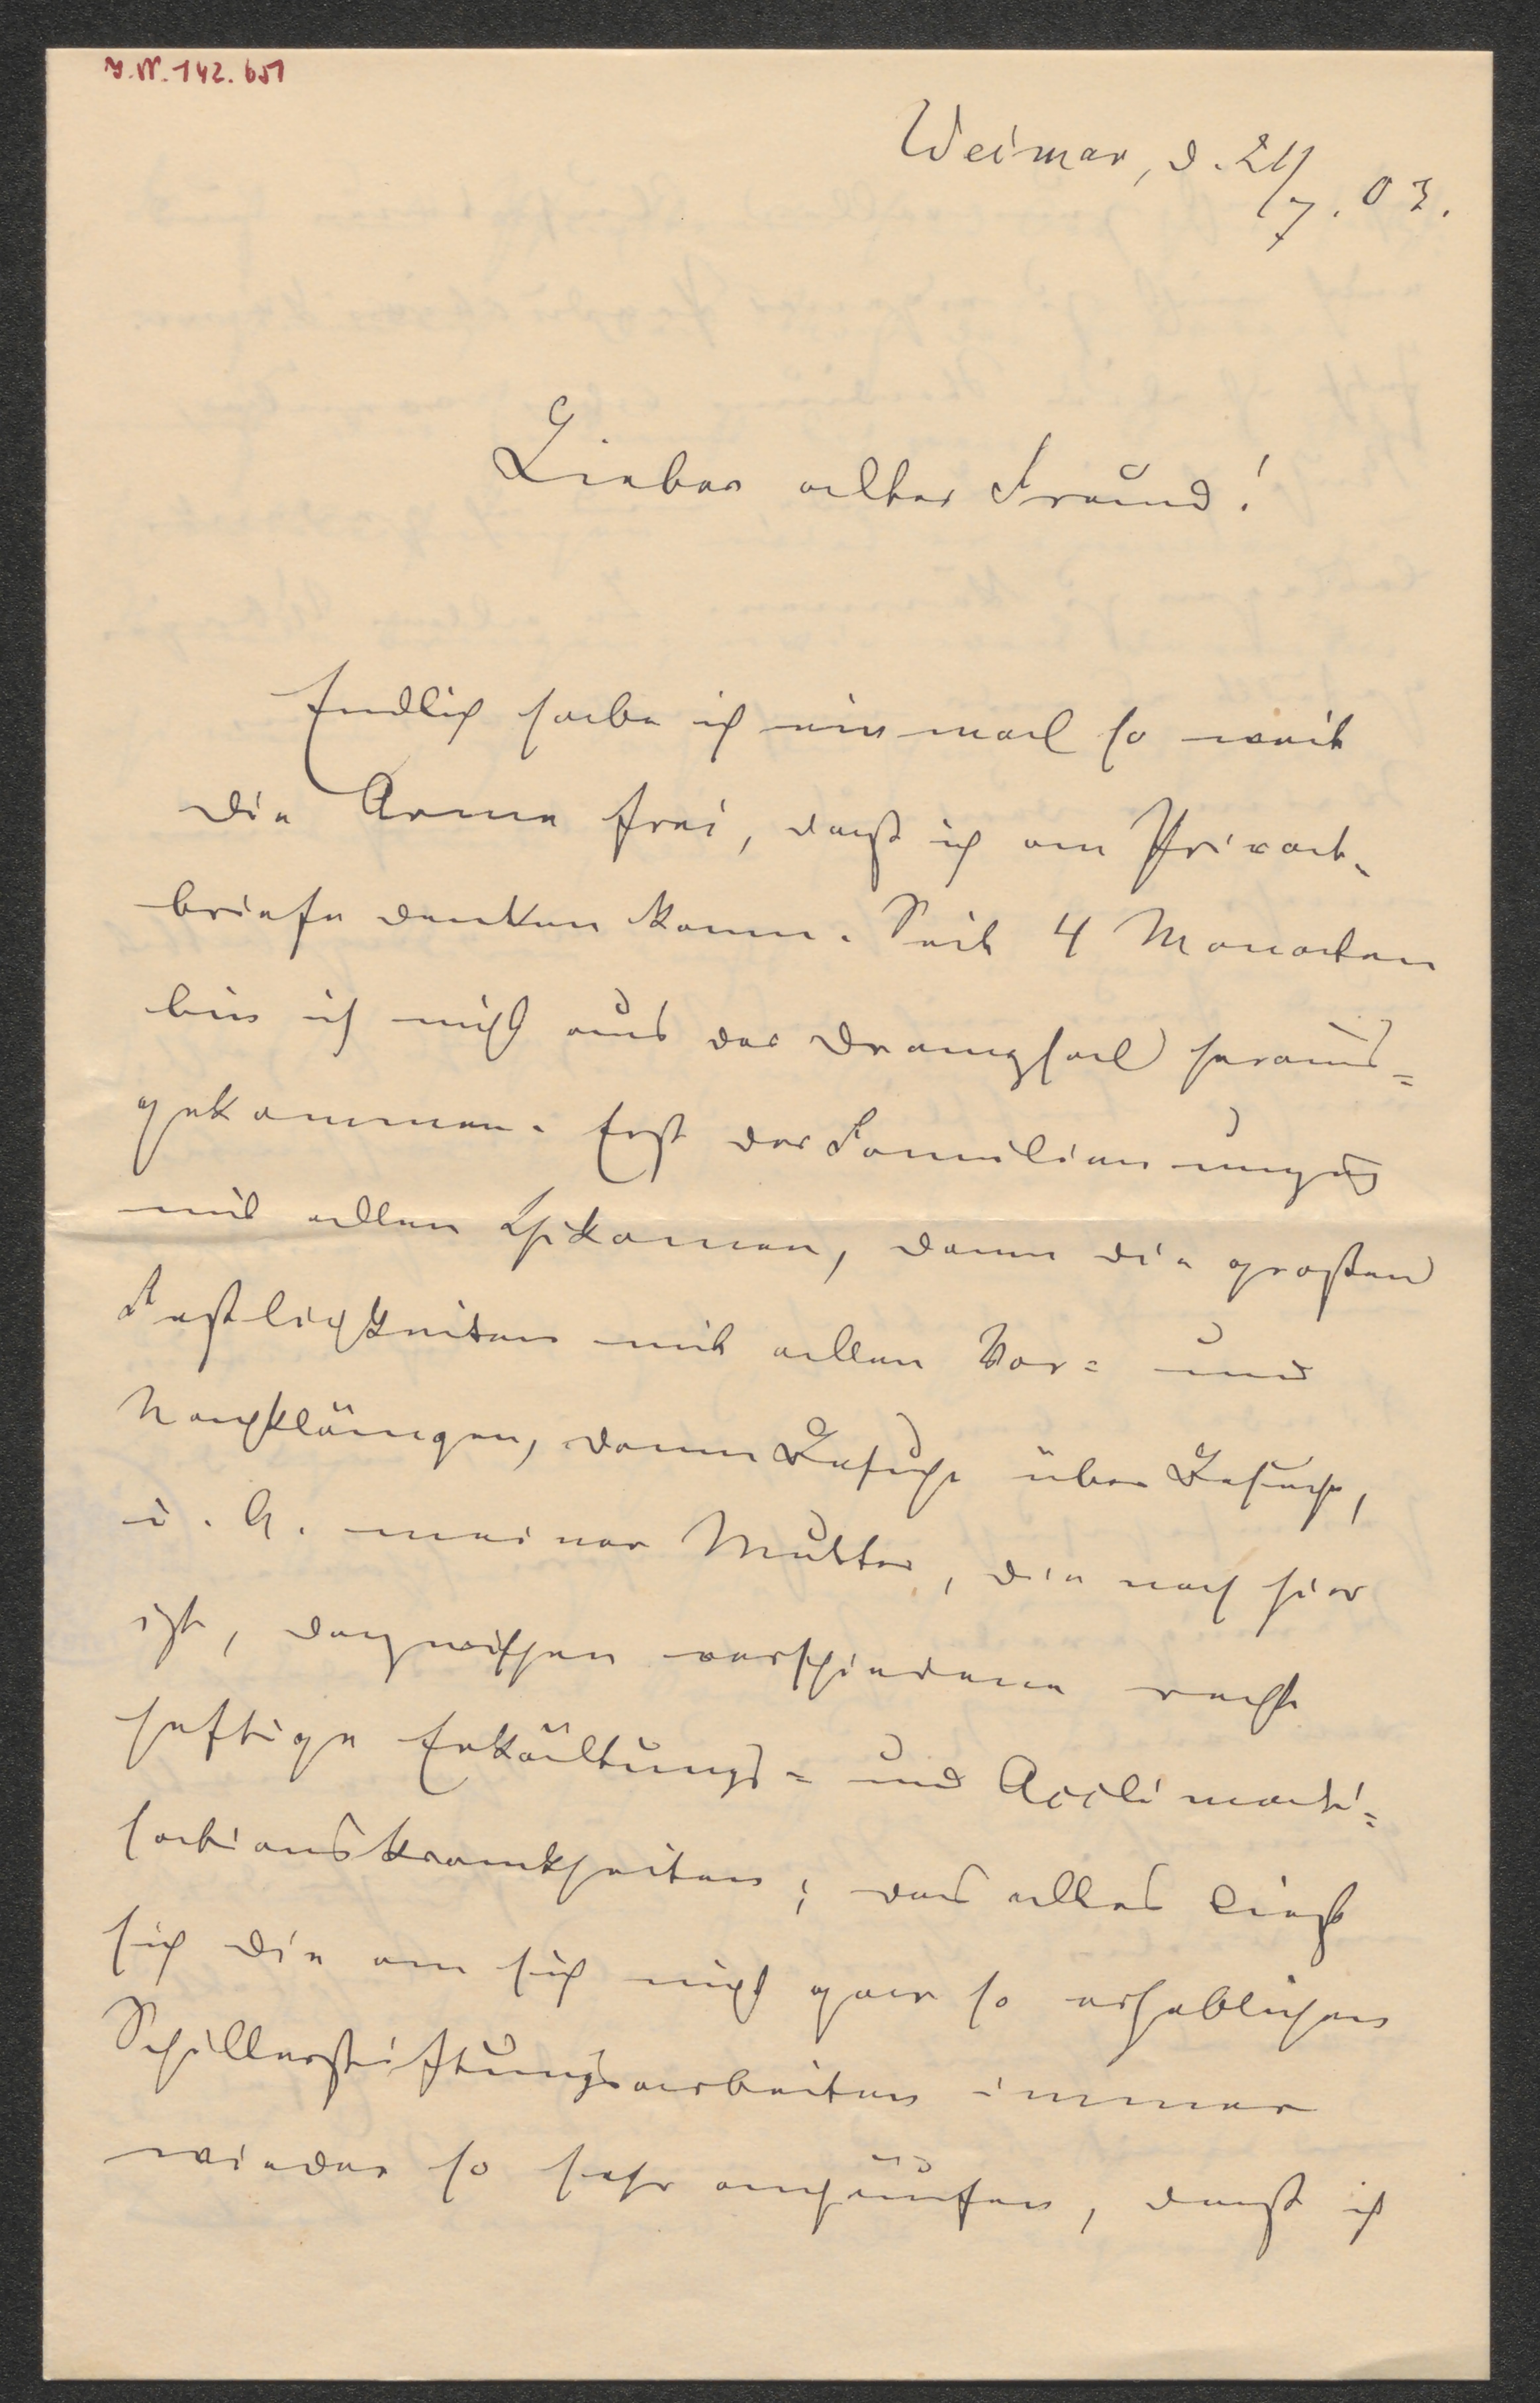 J.N. 142.651
Weimar, d. 21/7. 03.
Lieber alter Freund!
Endlich habe ich einmal so weit
die Arme frei, daß ich an Privat-
briefe denken kann. Seit 4 Monaten
bin ich nicht aus der Drangsal heraus=
gekommen. Erst der Familienumzug
mit allen Chikanen, dann die großen
Festlichkeiten mit allen Vor= und
Nachklängen, dann Besuche über Besuche,
u. A. meiner Mutter, die noch hier
ist, dazwischen verschiedene recht
heftige Erkältungs= und Acclimati=
sationskrankheiten; das alles ließ
sich die an sich nicht gar so erheblichen
Schillerstiftungsarbeiten immer
wieder so sehr anhäufen, daß ich